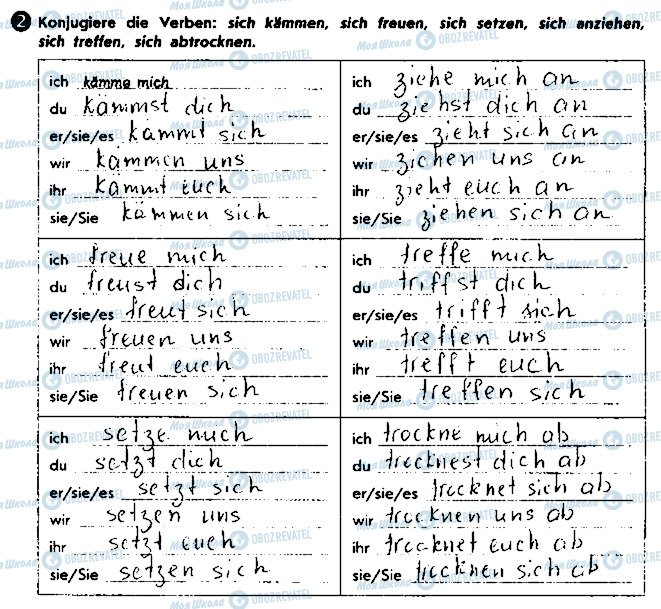 2 Konjugiere die Verben: sich kämmen, sich freuen, sich setzen, sich anziehen,
sich treffen, sich abtrocknen.
ich kämme mich
du kämmst dich
er/sie/es kämmt sich
wir kämmen uns
ihr kämmt euch
sie/Sie kämmen sich
ich ziehe mich an
du ziehst dich an
er/sie/es zieht sich an
wir ziehen uns an
ihr zieht euch an
sie/Sie ziehen sich an
ich freue mich
du freust dich
er/sie/es freut sich
wir freuen uns
ihr freut euch
sie/Sie freuen sich
ich treffe mich
du triffst dich
er/sie/es trifft sich
wir treffen uns
ihr trefft euch
sie/Sie treffen sich
ich setze mich
du setzt dich
er/sie/es setzt sich
wir setzen uns
ihr setzt euch
sie/Sie setzen sich
ich trockne mich ab
du trocknest dich ab
er/sie/es trocknet sich ab
wir trocknen uns ab
ihr trocknet euch ab
sie/Sie trocknen sich ab
Моя Школа OBOZREVATEL